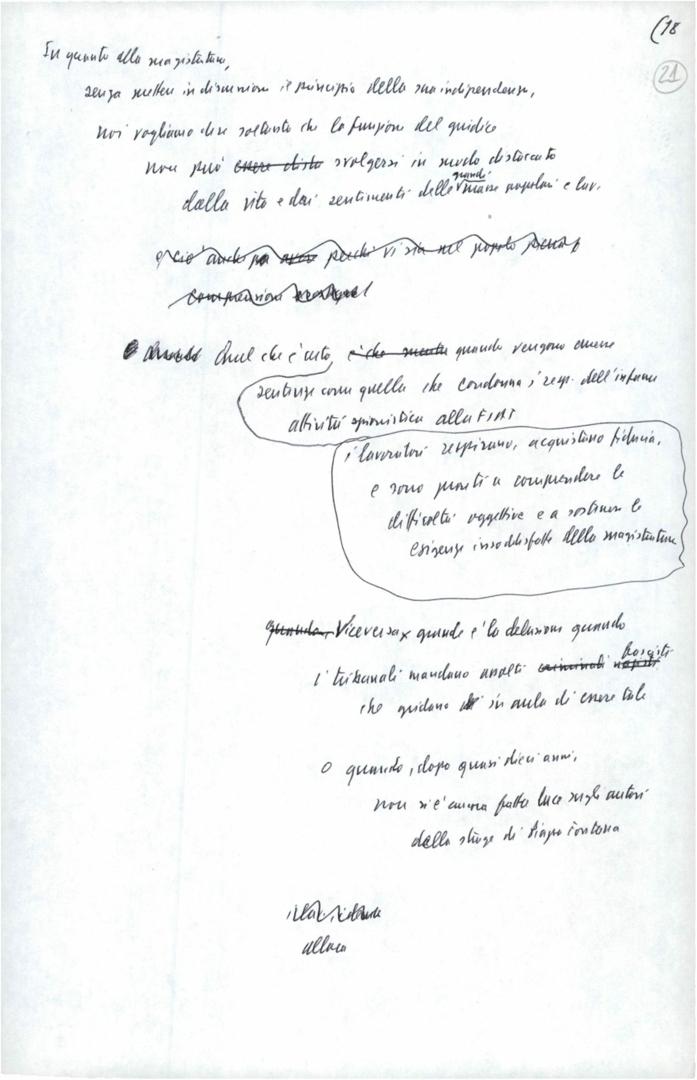 (18
21
In quanto alla magistratura,
senza mettere in discussione il principio della sua indipendenza,
noi vogliamo dire soltanto che la funzione del giudice
non può essere dista svolgersi in modo distaccato
grandi
dalla vita e dai sentimenti delle masse popolari e lav.
e ciò anche avere perché vi sia nel popolo piena
comprensione
Quel che è certo, è che quando vengono emesse
sentenze come quella che condanna i resp. dell'infame
attività spionistica alla FIAT
i lavoratori respirano, acquistano fiducia,
e sono pronti a comprendere le
difficoltà oggettive e a sostenere le
esigenze insoddisfatte della magistratura
quando, Viceversa grande è la delusione quando
fascisti
i tribunali mandano assolti criminali nazisti
che gridano in aula di essere tali
O quando, dopo quasi dieci anni,
non si è ancora fatta luce sugli autori
della strage di Piazza Fontana
allora